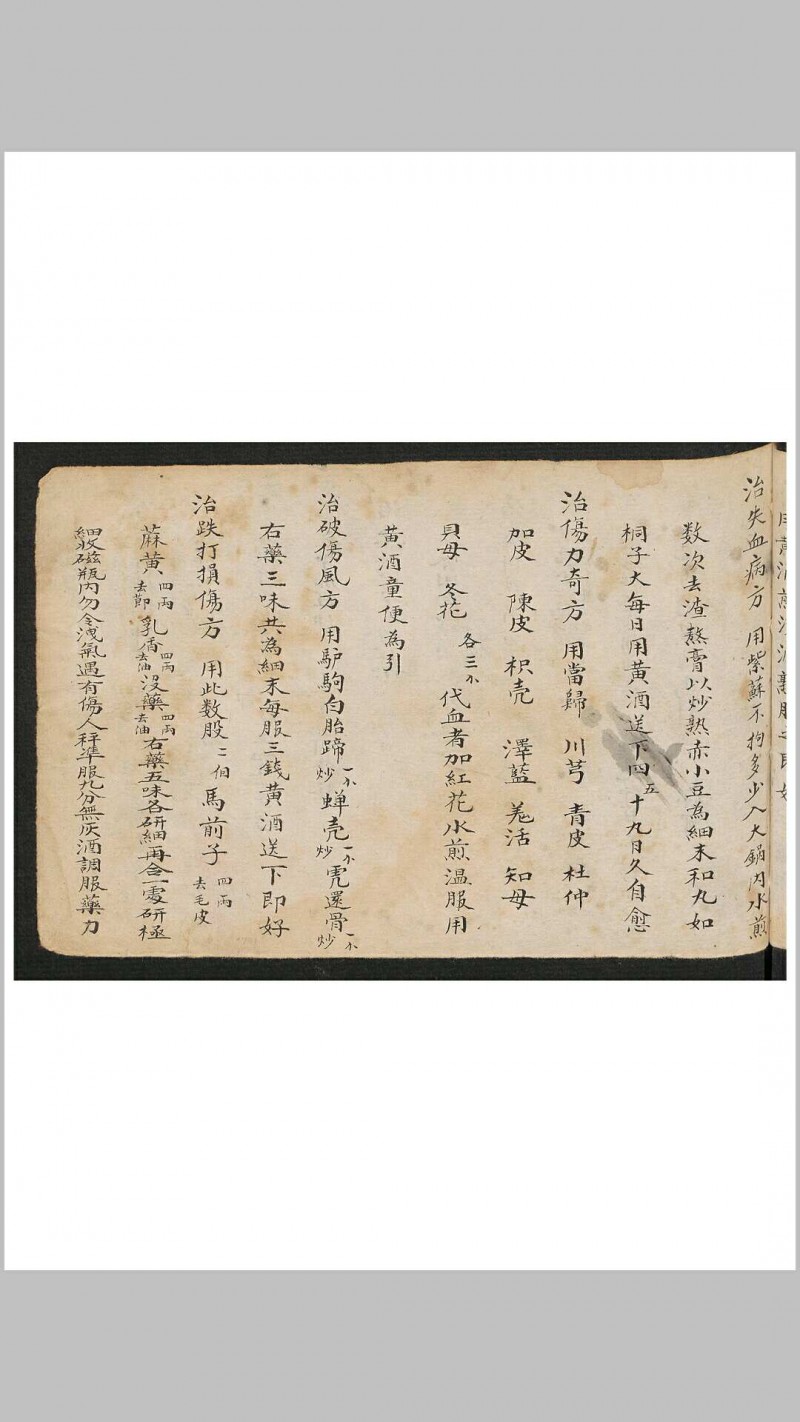 治失血病方 用紫蘇不拘多少入大鍋內水煎
数次去渣熬膏以炒熟赤小豆為細末和丸如
桐子大每日用黄酒送下四五十九日久自愈
治傷力奇方 用當歸 川芎 青皮 杜仲
加皮 陳皮 枳壳 澤藍 羌活 知母
貝母 冬花 各三小 代血者加紅花水煎温服用
黄酒童便為引
治破傷風方 用驴駒白胎蹄一小炒 蝉壳一小炒 還骨一小炒
右藥三味共為細末每服三錢黄酒送下即好
治跌打損傷方 用此数股二個 馬前子四两去毛皮
蔴黄四两去節 乳香四两去油 沒藥四两去油 右藥五味各研細再合一處研極
細收磁瓶內勿令洩氣遇有傷人秤準服九分無灰酒調服藥力